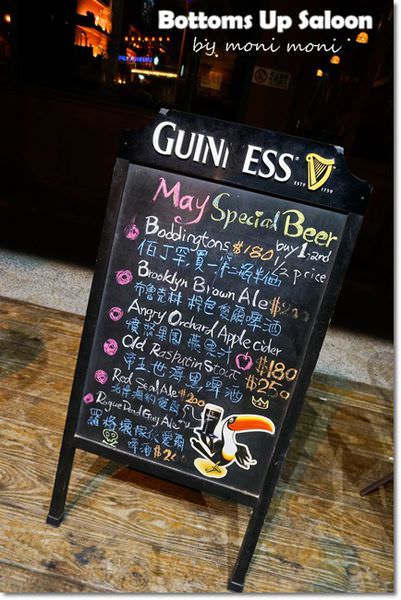 Bottoms Up Saloon
by moni moni
GUIN ESS
ESTD 1759
May Special Beer
Boddingtons $180 buy 1-2nd
伯丁罕買一第二杯半価 1/2 price
Brooklyn Brown Ale $200
布魯克林 棕色愛爾啤酒
Angry Orchard Apple cider
憤怒果園 蘋果汁 $180
Old Rasputin Stout $250
帝王世濤黑啤酒
Red Seal Ale $200
Rogue Dead Guy Ale
羅格 愛爾
啤酒